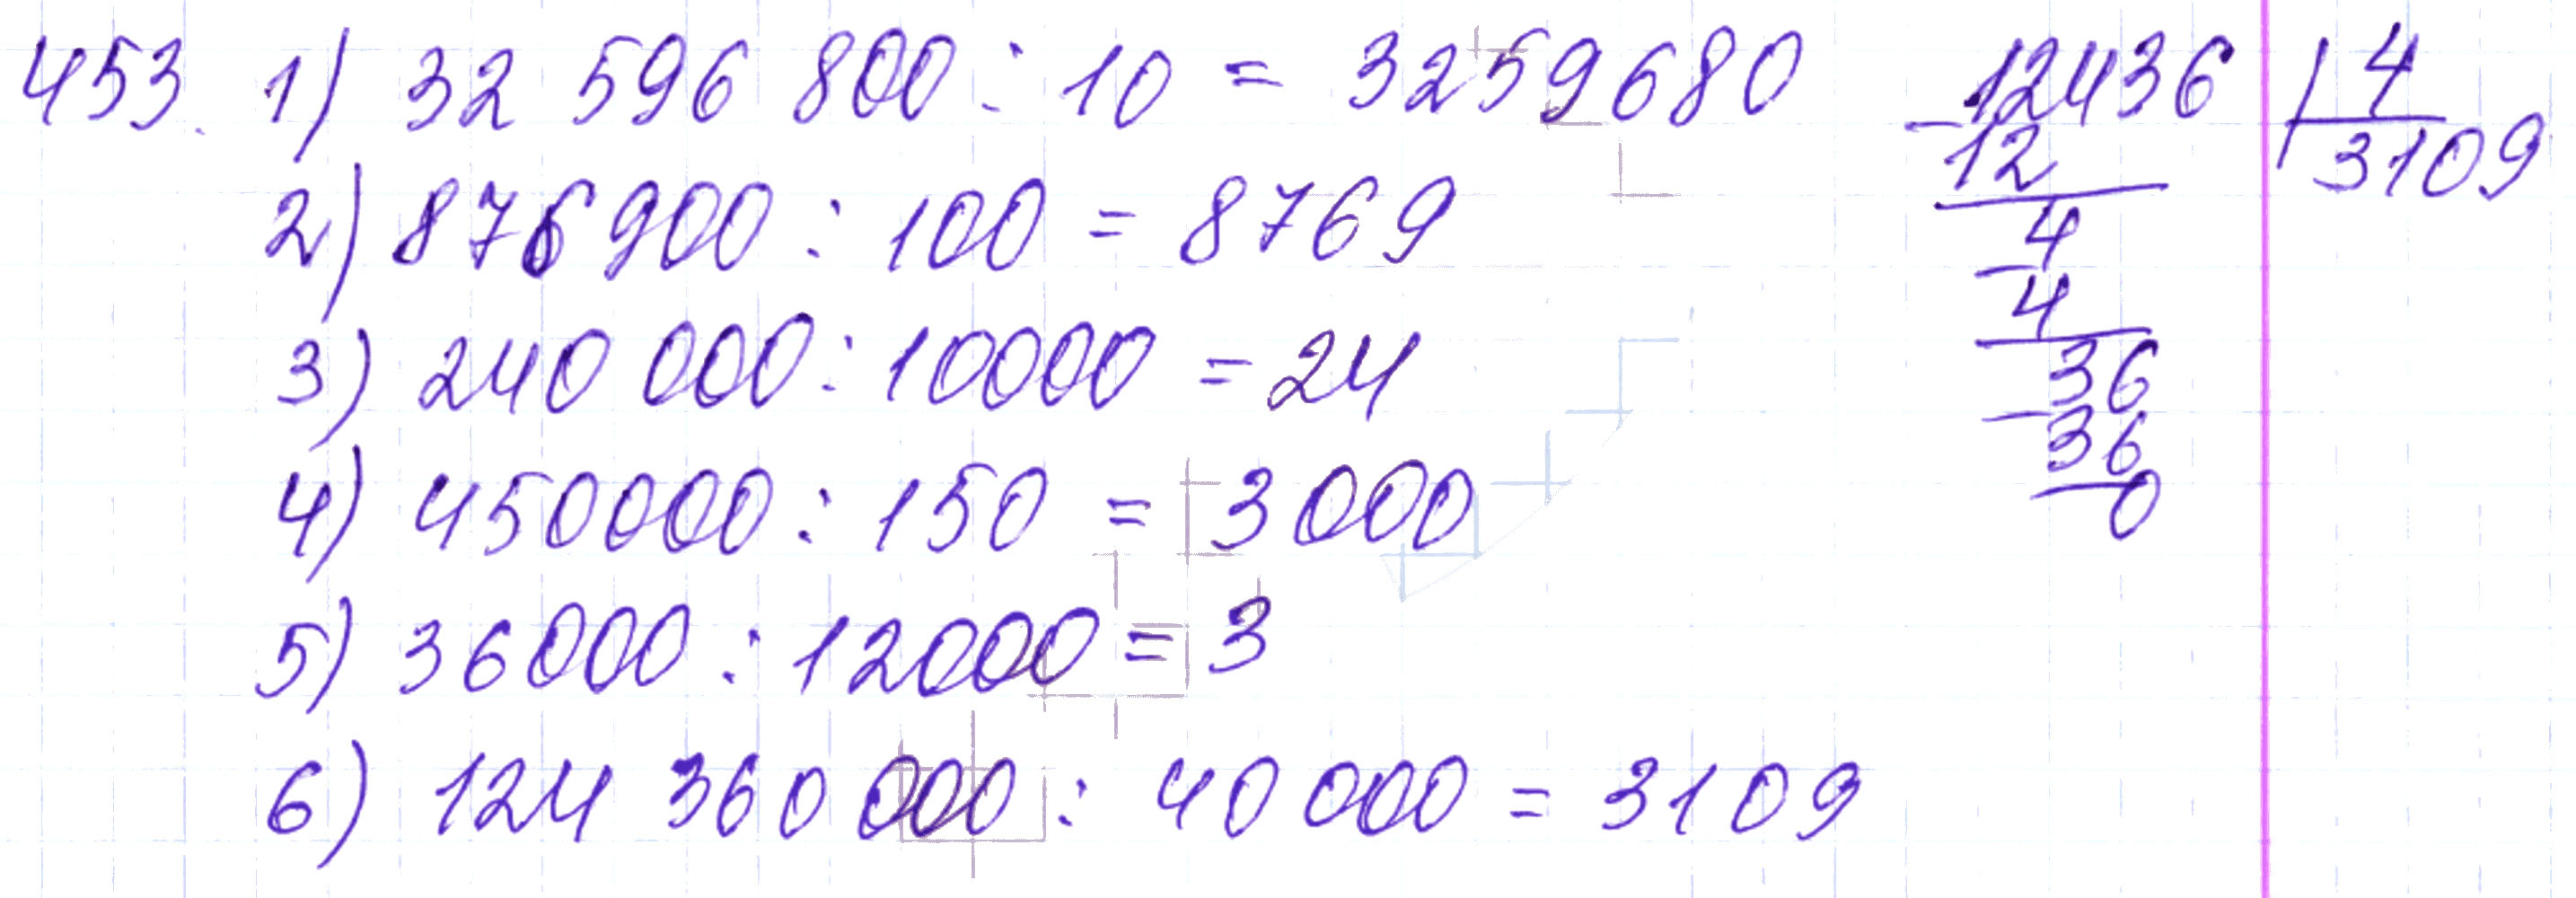 453. 1) 32 596 800 : 10 = 3259680
2) 876900 : 100 = 8769
3) 240 000 : 10000 = 24
4) 450000 : 150 = 3000
5) 36000 : 12000 = 3
6) 124 360 000 : 40 000 = 3109
12436 | 4
12 | 3109
4
4
36
36
0